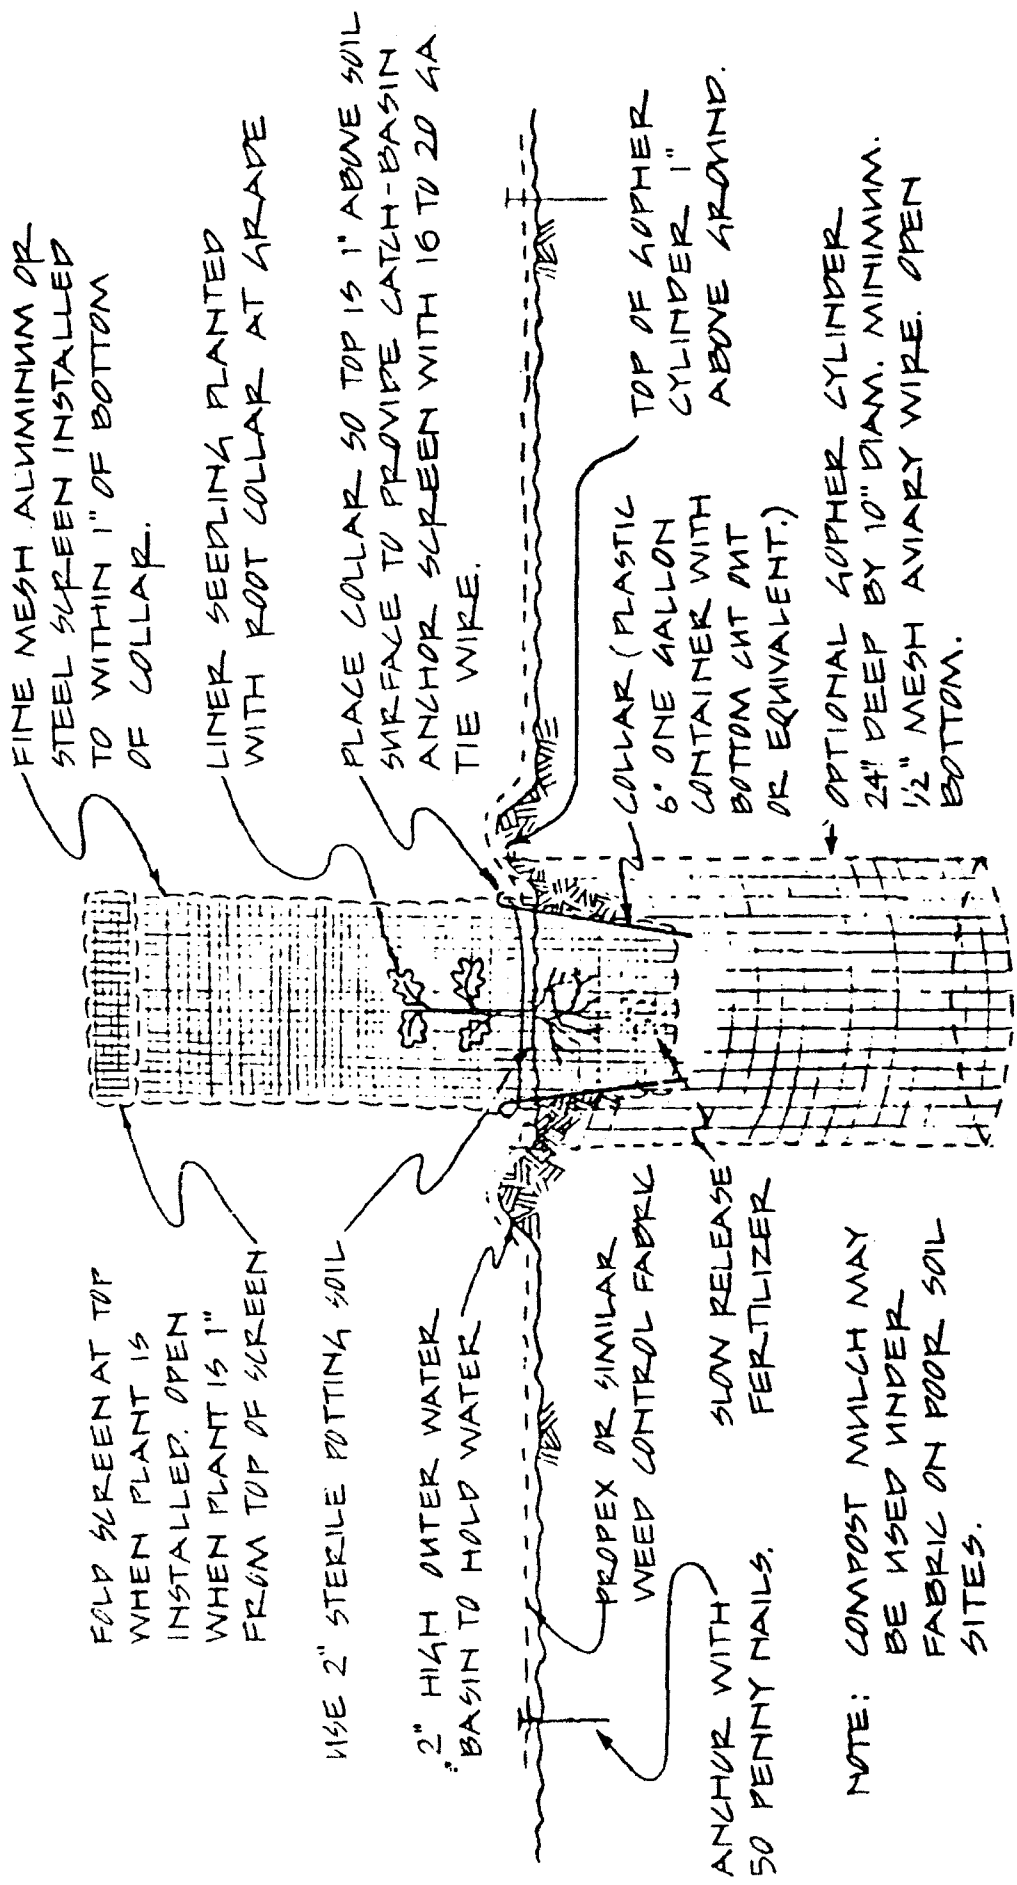 FOLD SCREEN AT TOP
WHEN PLANT IS
INSTALLED. OPEN
WHEN PLANT IS 1"
FROM TOP OF SCREEN
USE 2" STERILE POTTING SOIL
2" HIGH OUTER WATER
BASIN TO HOLD WATER
PROPEX OR SIMILAR
WEED CONTROL FABRIC
ANCHOR WITH
50 PENNY NAILS.
SLOW RELEASE
FERTILIZER
NOTE: COMPOST MULCH MAY
BE USED UNDER
FABRIC ON POOR SOIL
SITES.
FINE MESH ALUMINUM OR
STEEL SCREEN INSTALLED
TO WITHIN 1" OF BOTTOM
OF COLLAR.
LINER SEEDLING PLANTED
WITH ROOT COLLAR AT GRADE
PLACE COLLAR SO TOP IS 1" ABOVE SOIL
SURFACE TO PROVIDE CATCH-BASIN
ANCHOR SCREEN WITH 16 TO 20 GA
TIE WIRE.
TOP OF GOPHER
CYLINDER 1"
ABOVE GROUND.
COLLAR (PLASTIC
6" ONE GALLON
CONTAINER WITH
BOTTOM CUT OUT
OR EQUIVALENT.)
OPTIONAL GOPHER CYLINDER
24" DEEP BY 10" DIAM. MINIMUM.
1/2" MESH AVIARY WIRE. OPEN
BOTTOM.